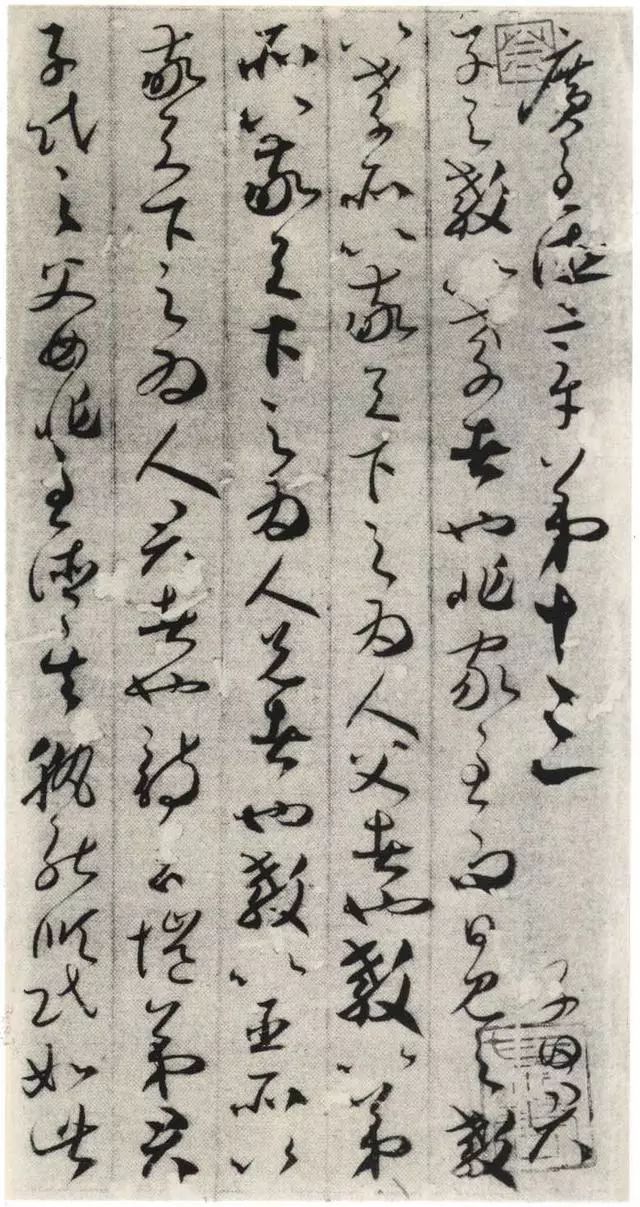 廣至德章第十三 子曰君
子之教以孝者也非家至而日見之教
以孝所以敬天下之為人父者也教以弟
所以敬天下之為人兄者也教以臣所以
敬天下之為人君者也詩云愷弟君
子民之父母非至德其孰能順民如此